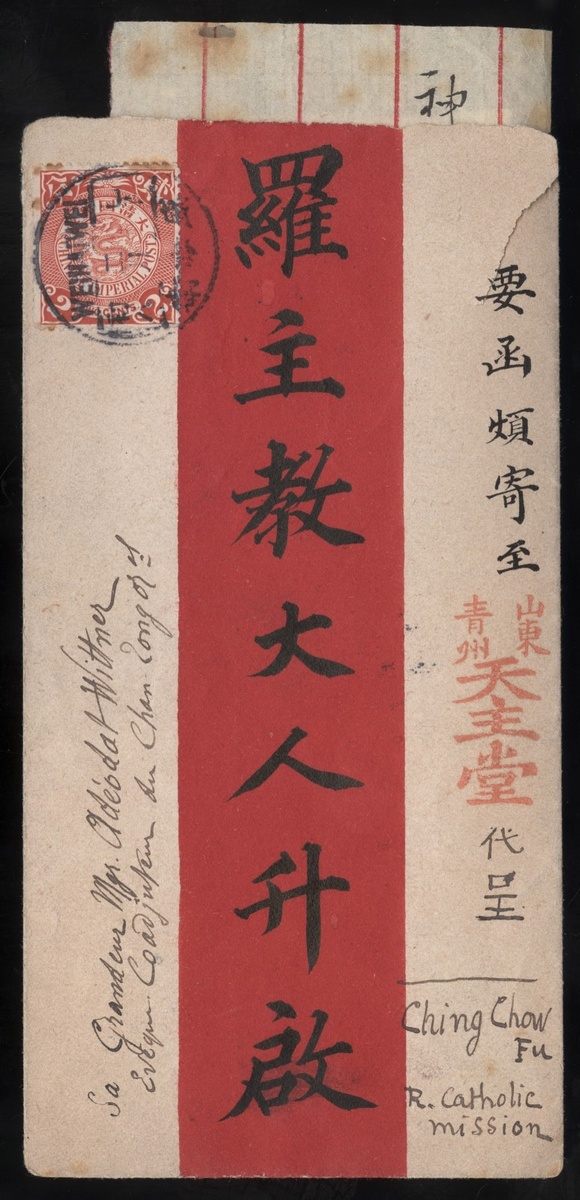 神
要函頻寄至
山東
青州
天主堂
代呈
Ching Chow
Fu
R. Catholic
mission
羅主教大人升啟
IMPERIAL POST
Sa Grandeur Mgr. Adéodat Wittner
Evêque Coadjuteur du Chan Tong or al